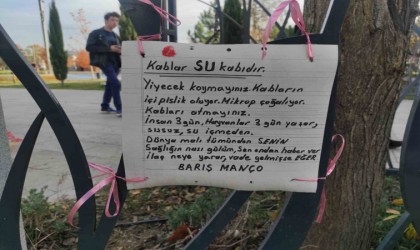 Kablar SU kabıdır.
Yiyecek koymayınız Kabların
içi pislik oluyor. Mikrop çoğalıyor.
Kabları atmayınız.
İnsan 3 gün, Hayvanlar 2 gün yaşar,
susuz, su içmeden.
Dünya malı tümünden SENİN
Sağlığın nasıl gülüm, Sen ondan haber ver
ilaç neye yarar, vade gelmişse EĞER
BARIŞ MANÇO